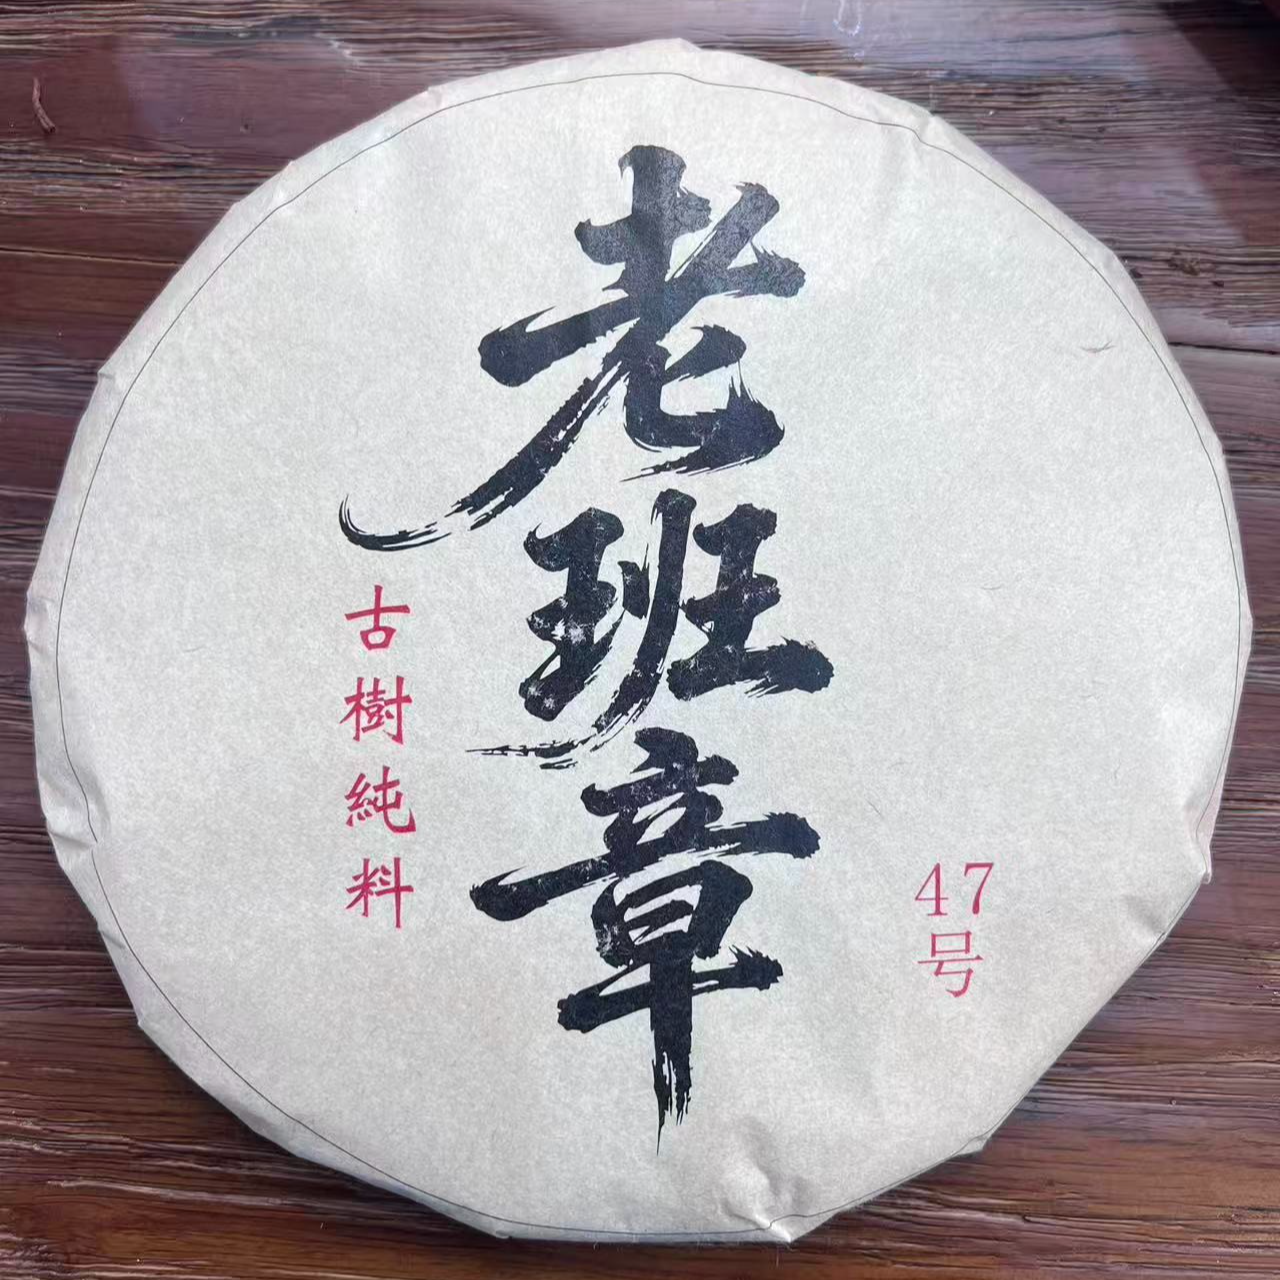 老班章
古樹純料
47
号